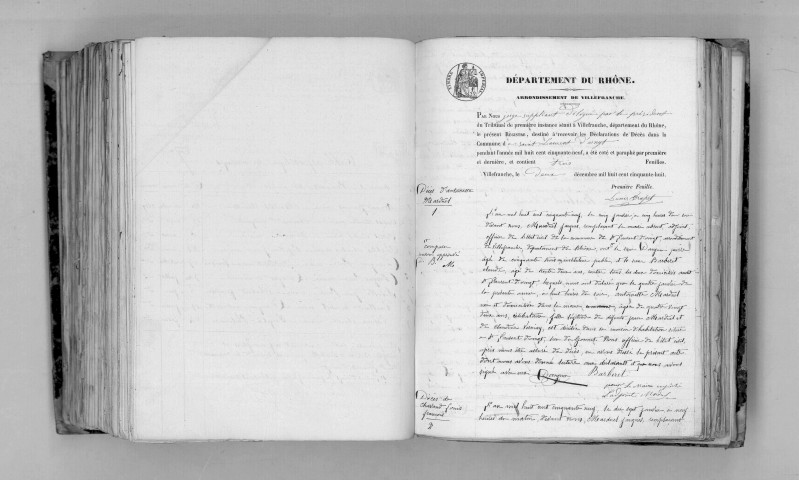 TIMBRE IMPERIAL
DÉPARTEMENT DU RHÔNE.
ARRONDISSEMENT DE VILLEFRANCHE
PAR NOUS juge suppléant délégué par le président
du Tribunal de première instance séant à Villefranche, département du Rhône,
le présent REGISTRE, destiné à recevoir les Déclarations de Décès dans la
Commune de Saint Laurent d'oingt
pendant l'année mil huit cent cinquante-neuf, a été coté et paraphé par première
et dernière, et contient trois Feuilles.
Villefranche, le douze décembre mil huit cent cinquante-huit.
Première Feuille.
Décès d'antoinette
Marduel
1
L'an mil huit cent cinquante neuf, le cinq janvier, à cinq heures du soir
devant nous, Marduel Jaques, remplaçant le maire absent, adjoint,
officier de l'état civil de la commune de St Laurent d'oingt, arrondissement
de Villefranche, département du Rhône, est le sieur
âgé de cinquante trois ans, instituteur public, et le sieur Barberet
claude, âgé de trente deux ans, tous les deux domiciliés audit
St Laurent d'oingt, lesquels nous ont déclaré que le quatre janvier de
la présente année, à huit heures du soir, antoinette Marduel
née et domiciliée dans la commune âgée de quatre vingt
trois ans, célibataire, fille légitime de défunts jean Marduel et
de claudine, est décédée dans sa maison d'habitation située
à St Laurent d'oingt. Nous officier de l'état civil,
après nous être assuré du décès, en avons dressé le présent acte
dont nous avons donné lecture aux déclarants et que nous avons
signé avec eux
Barberet
pour le Maire empêché
L'adjoint Marduel
Décès de
françois
2
L'an mil huit cent cinquante neuf, le dix sept janvier à neuf
heures du matin, devant nous, Marduel Jaques, remplaçant